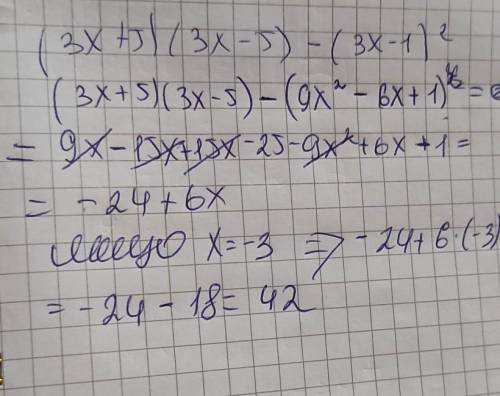 (3x+5)(3x-5)-(3x-1)²
(3x+5)(3x-5)-(9x²-6x+1)=
= 9x-15x+15x-25-9x²+6x+1=
= -24+6x
x=-3 => -24+6·(-3)
= -24-18= 42